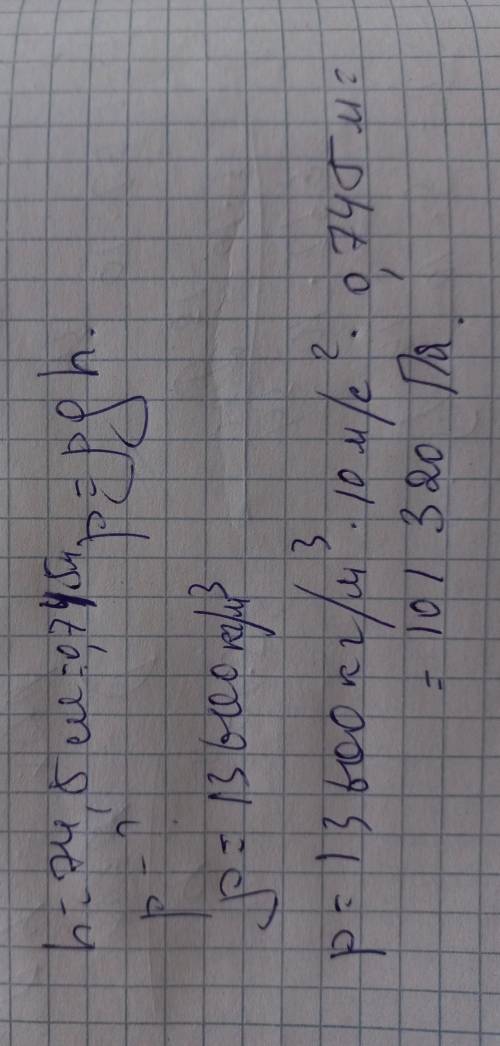 h = 74,5 см = 0,745 м. p = ρgh.
p - ?
ρ = 13600 кг/м³
p = 13600 кг/м³ · 10 м/с² · 0,745 м =
= 101 320 Па.